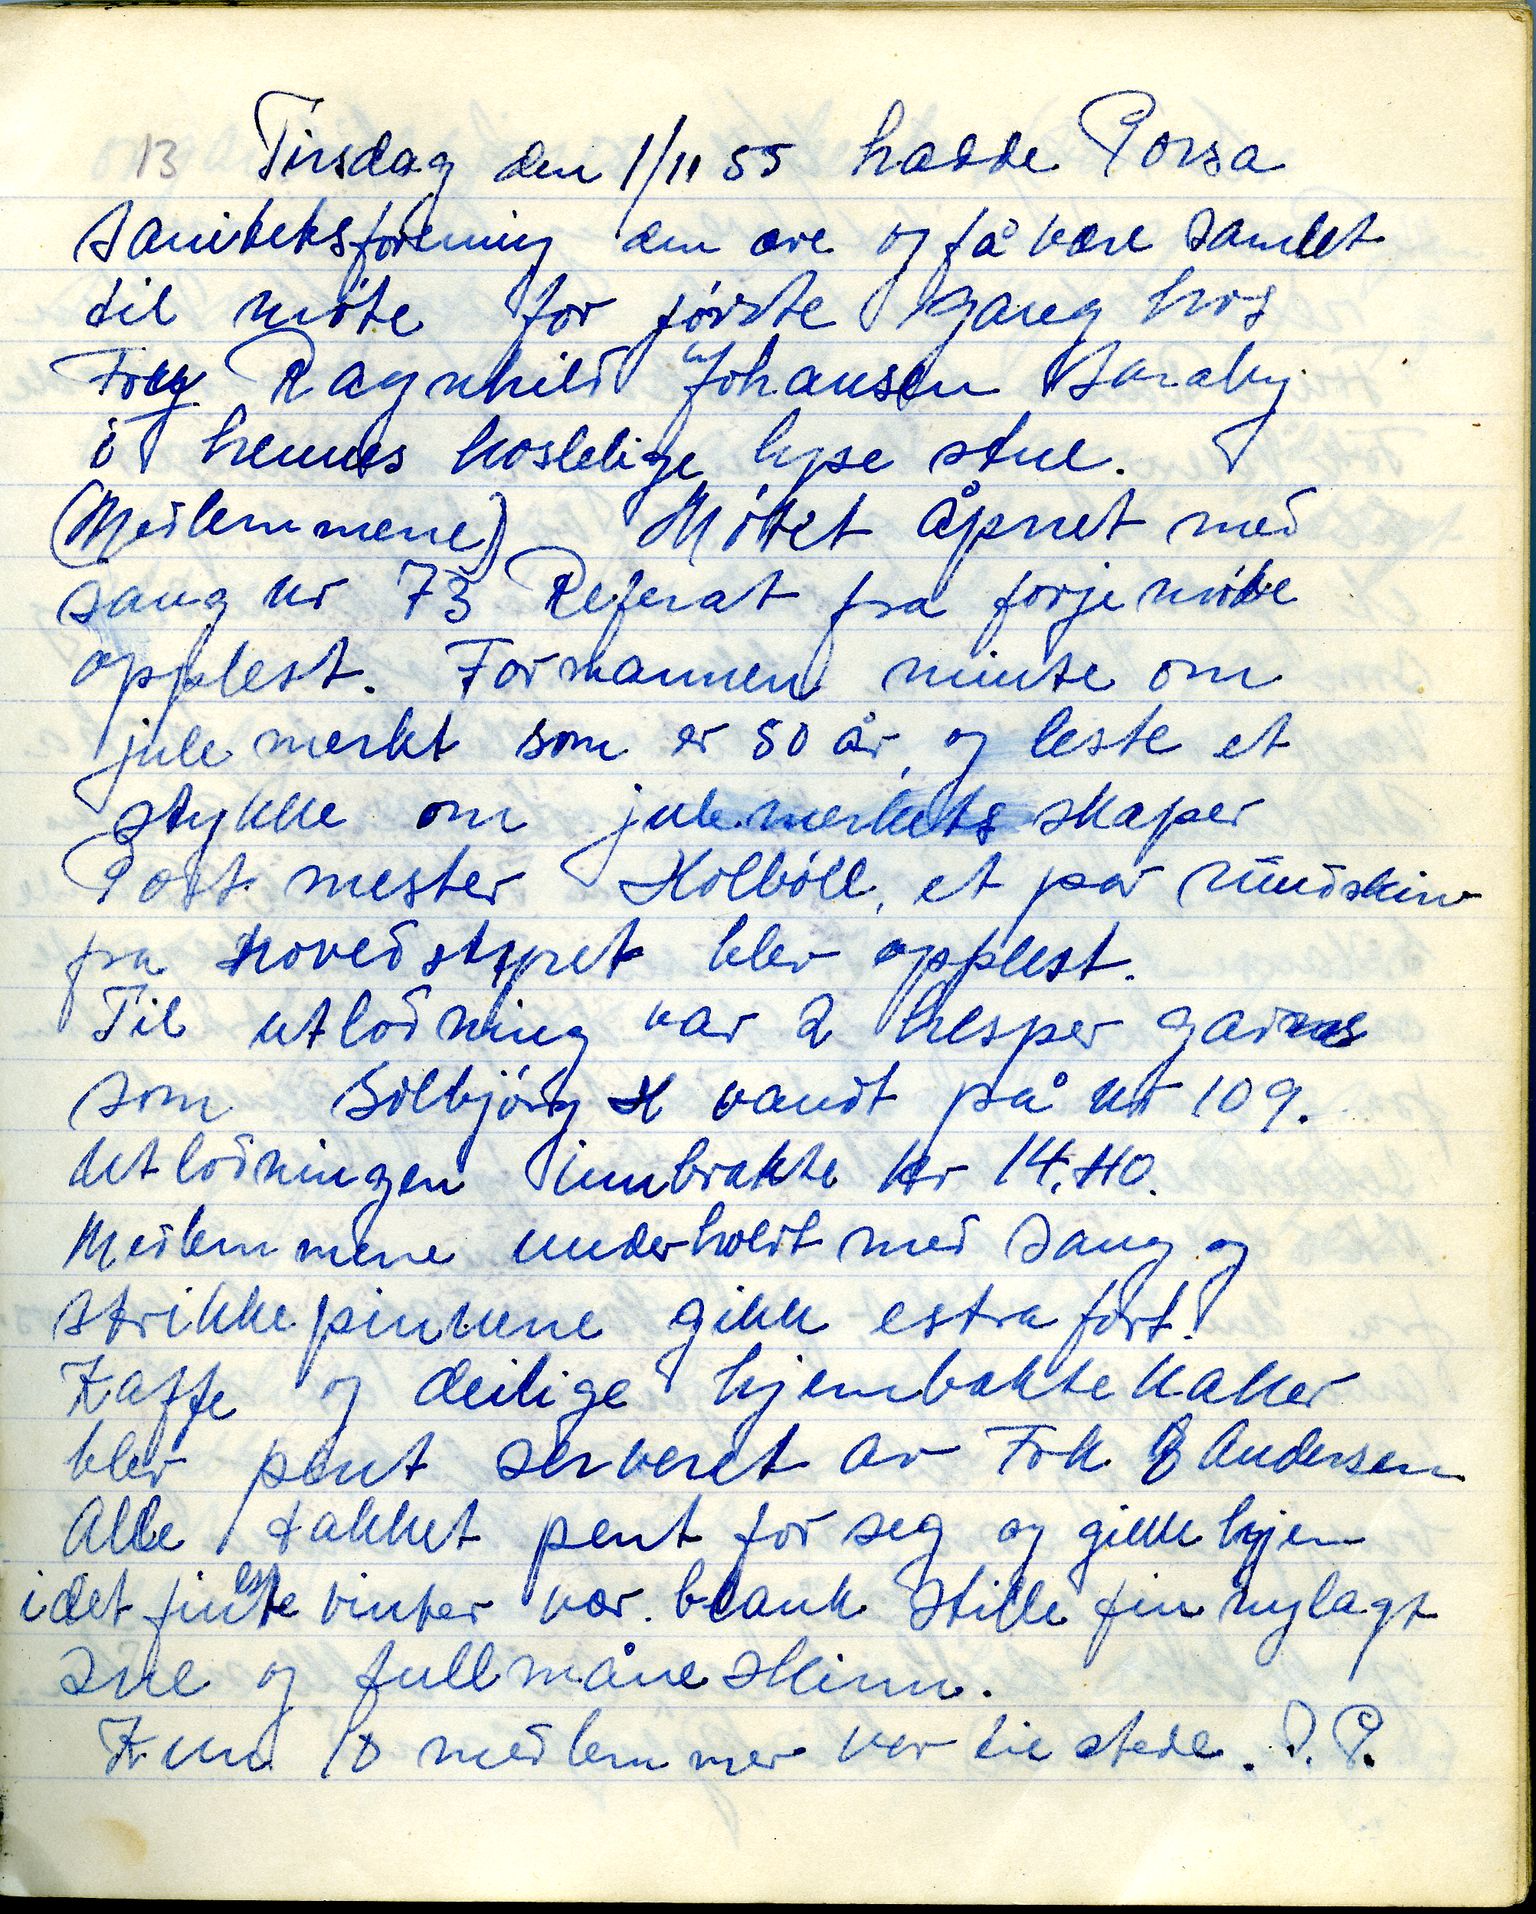 13 Tirsdag den 1/11 55 hadde Porsa
Sanitetsforening den ære og få være samlet
til møte for første gang hos
Ragnhild Johansen Saraby
i hennes koslelige lyse stue.
(Medlemmene) Møtet åpnet med
sang nr 73 Referat fra forje møte
opplest. Formannen minte om
jule merket som er 50 år, og leste et
stykke om julemerkets skaper
Post mester Holbøll, et par rundskriv
fra hovedstyret blev opplest.
Til utlodning var 2 hesper garns
som Solbjørg H vandt på nr 109.
Utlodningen innbrakte kr 14.40.
Medlemmene underholdt med sang og
strikkepinnene gikk estra fort!
Kaffe og deilige hjembakte kaker
blev pent serveret av Frk Andersen
Alle takket pent for seg og gikk hjem
i det fineste vinter vær. blank stille fin nylagt
sne og fullmåne skinn.
Kun medlemmer var tilstede. P.P.